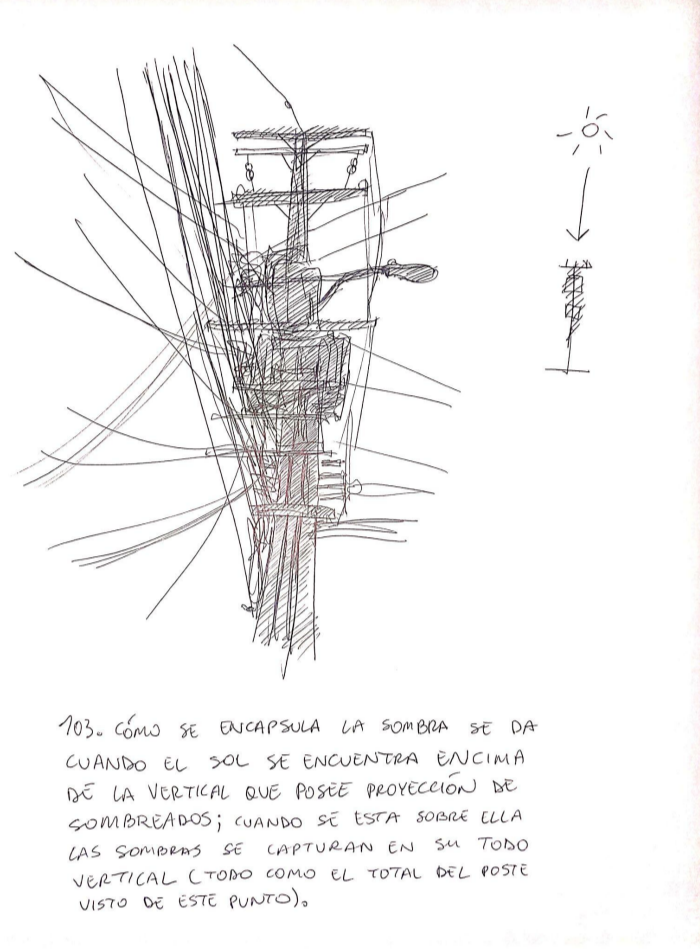 103. CÓMO SE ENCAPSULA LA SOMBRA SE DA
CUANDO EL SOL SE ENCUENTRA ENCIMA
DE LA VERTICAL QUE POSEE PROYECCIÓN DE
SOMBREADOS; CUANDO SE ESTA SOBRE ELLA
LAS SOMBRAS SE CAPTURAN EN SU TODO
VERTICAL (TODO COMO EL TOTAL DEL POSTE
VISTO DE ESTE PUNTO).